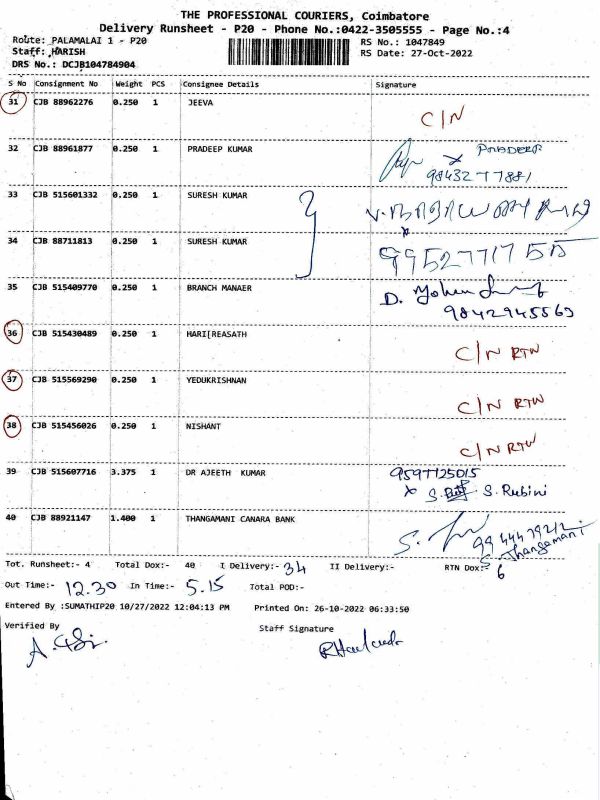 THE PROFESSIONAL COURIERS, Coimbatore
Delivery Runsheet - P20 - Phone No.:0422-3505555 - Page No.:4
Route: PALAMALAI 1 - P20 RS No.: 1047849
Staff: HARISH RS Date: 27-Oct-2022
DRS No.: DCJB104784904
S No Consignment No Weight PCS Consignee Details Signature
31 CJB 88962276 0.250 1 JEEVA C/N
32 CJB 88961877 0.250 1 PRADEEP KUMAR x PRADEEP
9843277881
33 CJB 515601332 0.250 1 SURESH KUMAR
34 CJB 88711813 0.250 1 SURESH KUMAR
35 CJB 515409770 0.250 1 BRANCH MANAER D.
9842945563
36 CJB 515430489 0.250 1 HARI[REASATH C/N RTN
37 CJB 515569290 0.250 1 YEDUKRISHNAN C/N RTN
38 CJB 515456026 0.250 1 NISHANT C/N RTN
39 CJB 515607716 3.375 1 DR AJEETH KUMAR 9597125015
x S. S. Rubini
40 CJB 88921147 1.400 1 THANGAMANI CANARA BANK
S. Thangamani
Tot. Runsheet:- 4 Total Dox:- 40 I Delivery:- 34 II Delivery:- RTN Dox:- 6
Out Time:- 12.30 In Time:- 5.15 Total POD:-
Entered By :SUMATHIP20 10/27/2022 12:04:13 PM Printed On: 26-10-2022 06:33:50
Verified By Staff Signature